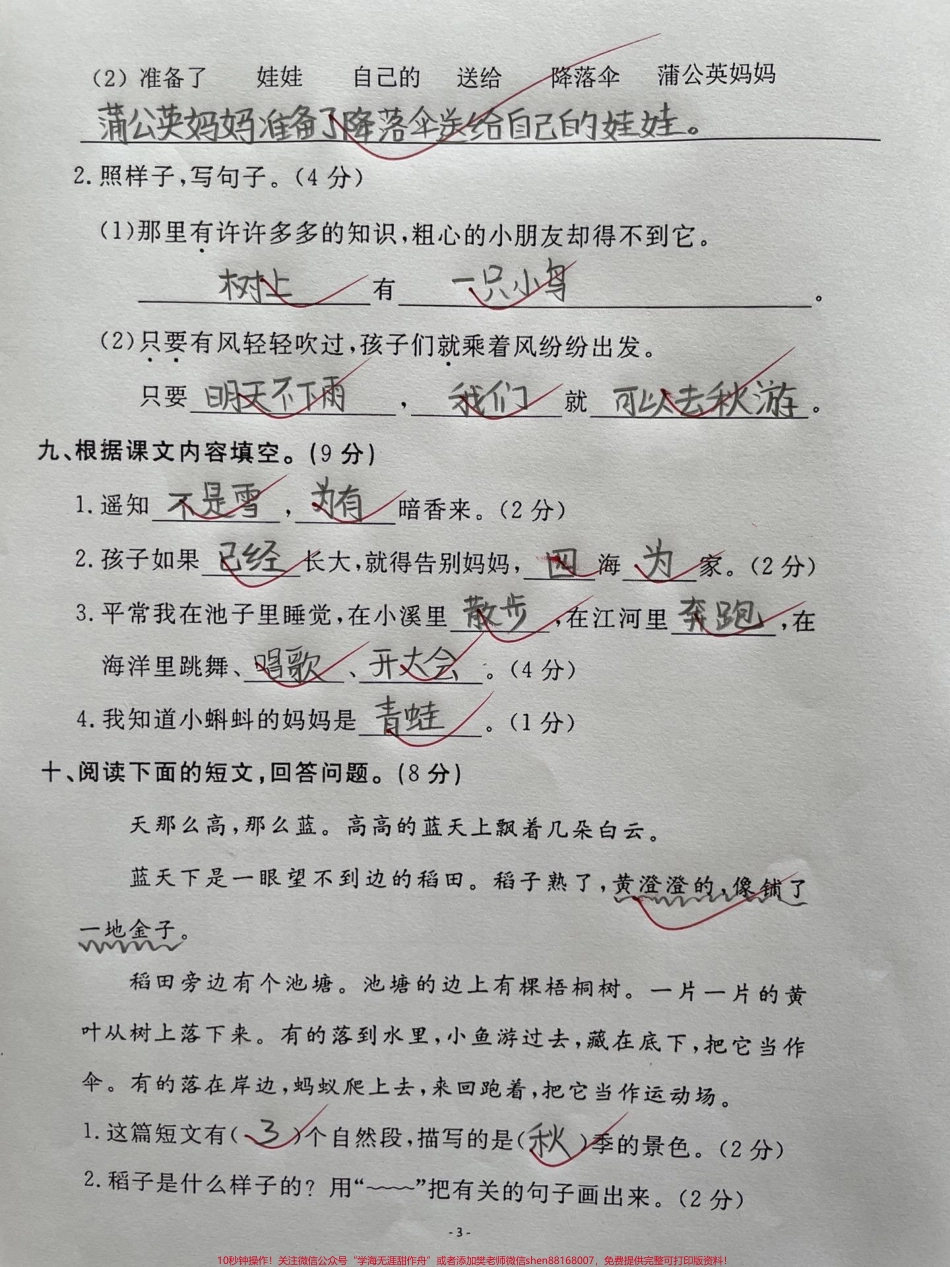 (2) 准备了 娃娃 自己的 送给 降落伞 蒲公英妈妈
蒲公英妈妈准备了降落伞送给自己的娃娃。
2.照样子,写句子。(4分)
(1)那里有许许多多的知识,粗心的小朋友却得不到它。
树上 有 一只小鸟 。
(2)只要有风轻轻吹过,孩子们就乘着风纷纷出发。
只要 明天不下雨 , 我们 就 可以去秋游 。
九、根据课文内容填空。(9分)
1.遥知 不是雪 , 为有 暗香来。(2分)
2.孩子如果 已经 长大,就得告别妈妈, 四 海 为 家。(2分)
3.平常我在池子里睡觉,在小溪里 散步 ,在江河里 奔跑 ,在
海洋里跳舞、 唱歌 、 开大会 。(4分)
4.我知道小蝌蚪的妈妈是 青蛙 。(1分)
十、阅读下面的短文,回答问题。(8分)
天那么高,那么蓝。高高的蓝天上飘着几朵白云。
蓝天下是一眼望不到边的稻田。稻子熟了,黄澄澄的,像铺了
一地金子。
稻田旁边有个池塘。池塘的边上有棵梧桐树。一片一片的黄
叶从树上落下来。有的落到水里,小鱼游过去,藏在底下,把它当作
伞。有的落在岸边,蚂蚁爬上去,来回跑着,把它当作运动场。
1.这篇短文有( 3 )个自然段,描写的是( 秋 )季的景色。(2分)
2.稻子是什么样子的?用“﹏﹏”把有关的句子画出来。(2分)
- 3 -
10秒钟操作！关注微信公众号“学海无涯甜作舟”或者添加樊老师微信shen88168007，免费提供完整可打印版资料！